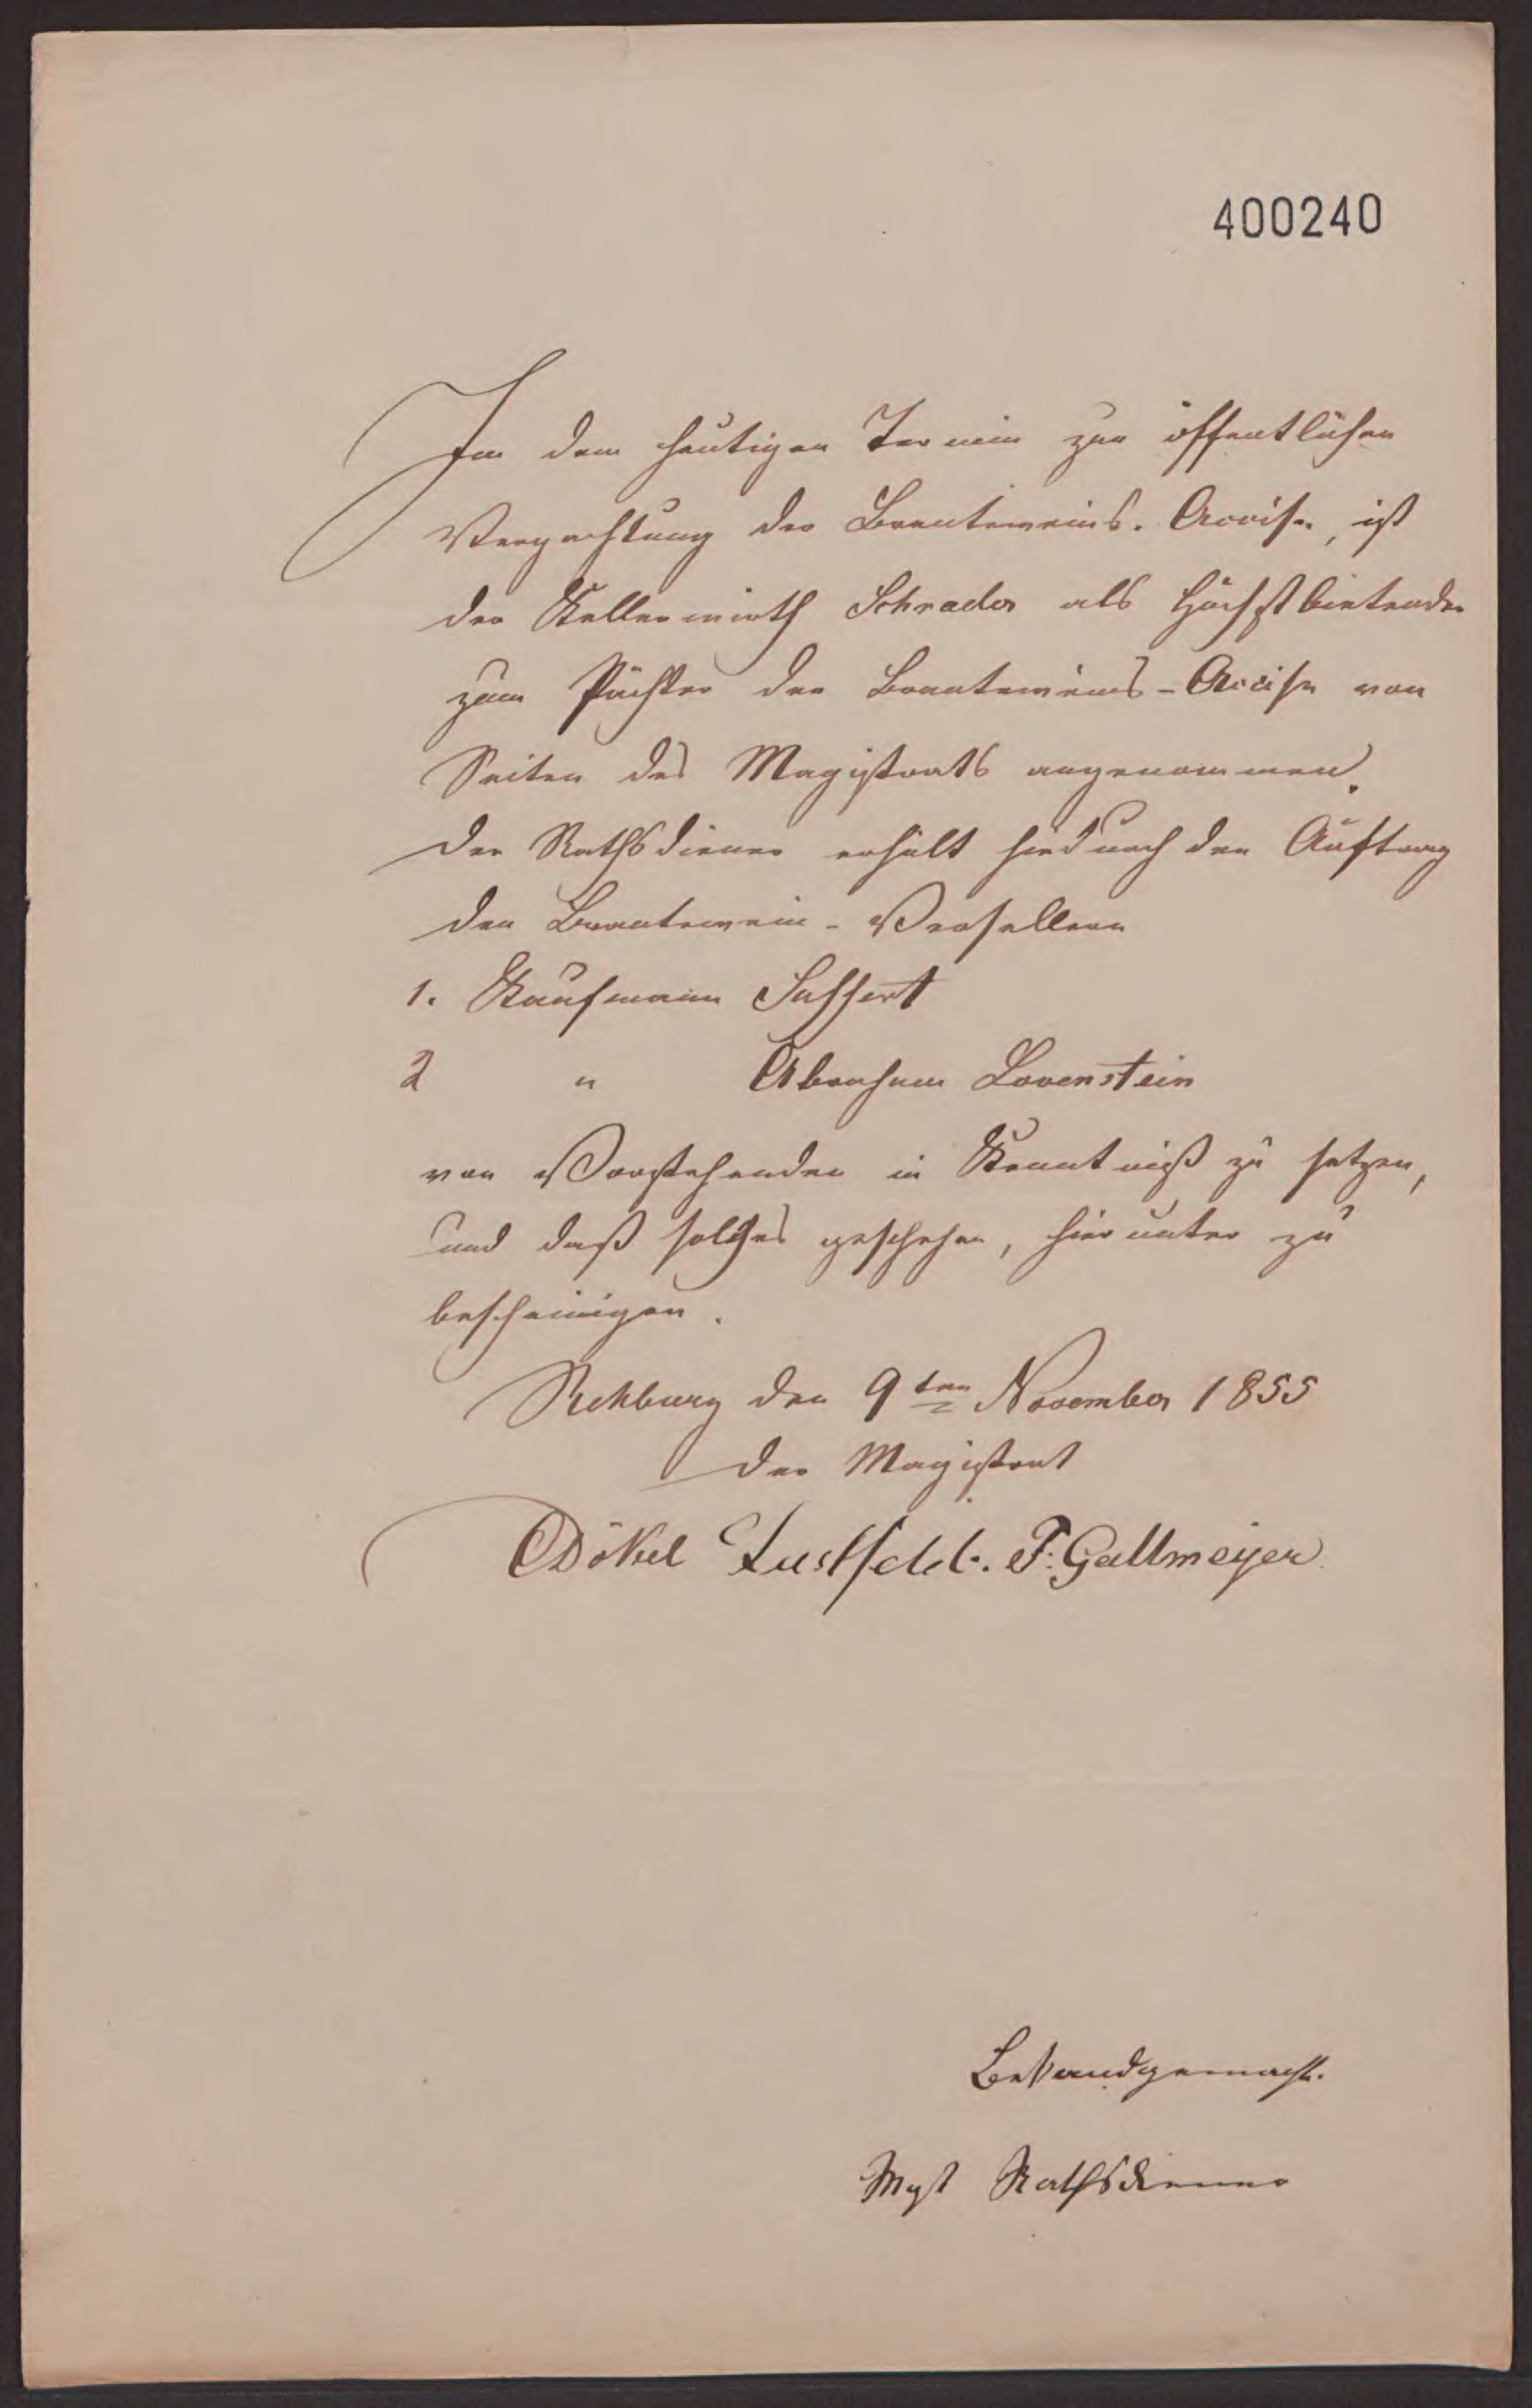 400240
In dem heutigen Termin zur öffentlichen
Verpachtung der Branteweins-Accise, ist
der Kellerwirth Schrader als Höchstbietender
zum Pächter der Branteweins-Accise von
Seiten des Magistrats angenommen.
Der Rathsdiener erhält hiedurch den Auftrag
den Brantewein-Versellern
1. Kaufmann
2 " Abraham Lovenstein
von Vorstehenden in Kenntniß zu setzen,
und daß solches geschehen, hierunter zu
bescheinigen.
Rehburg den 9ten November 1855
Der Magistrat
Dökel Lustfeldt. F: Gallmeyer
Bekandgemacht.
Rathsdiener